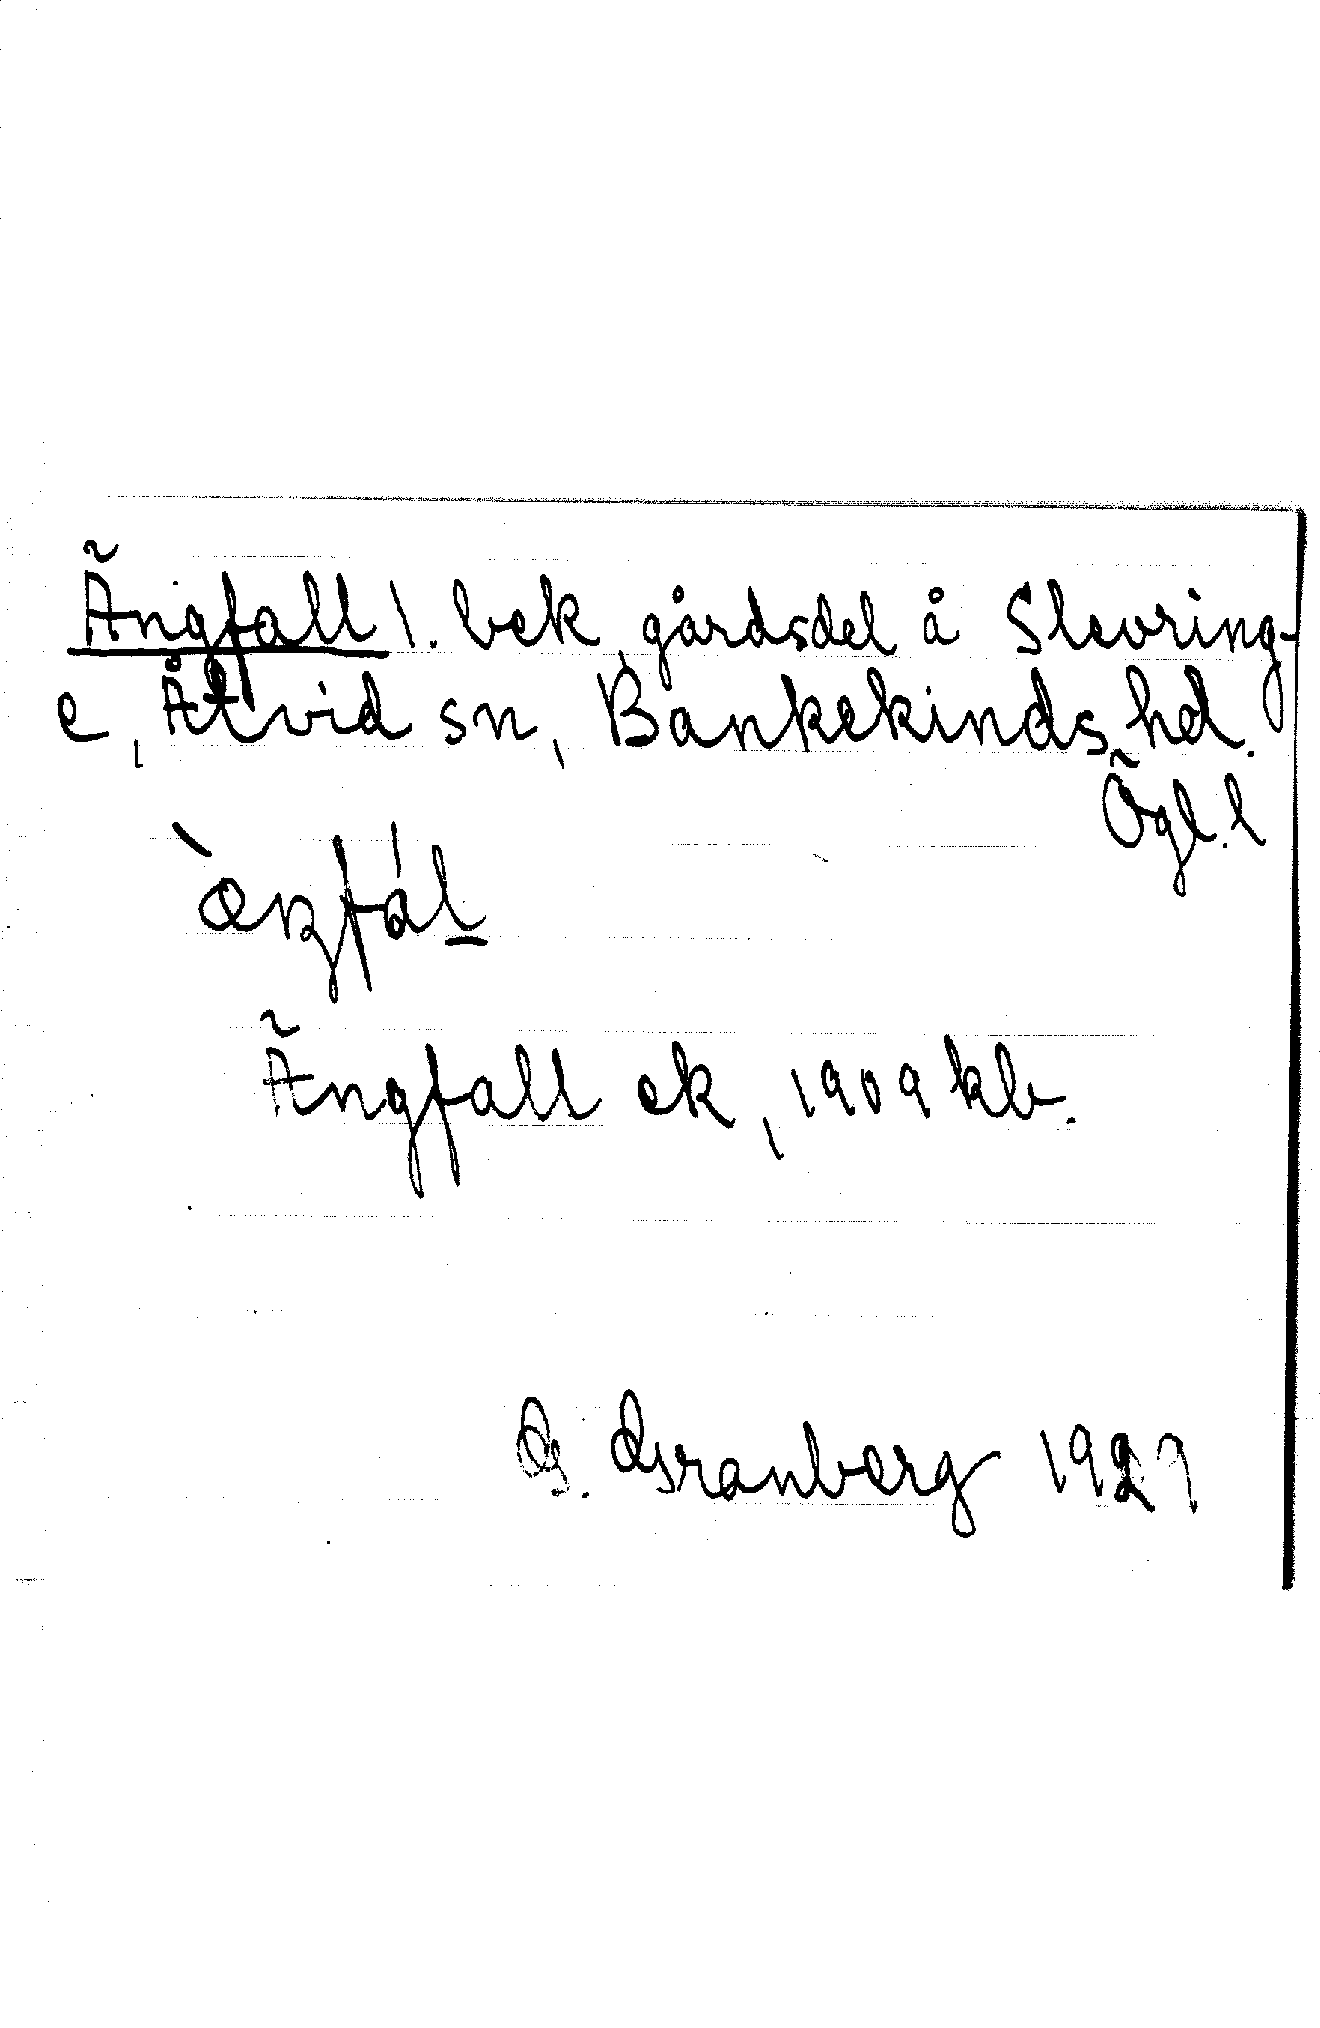 Ängfall l. bek, gårdsdel å Slevring-
e, Åtvid sn, Bankekinds hd.
Ögl. l
Ängfall ek, 1909 kb.
G. Granberg 1929